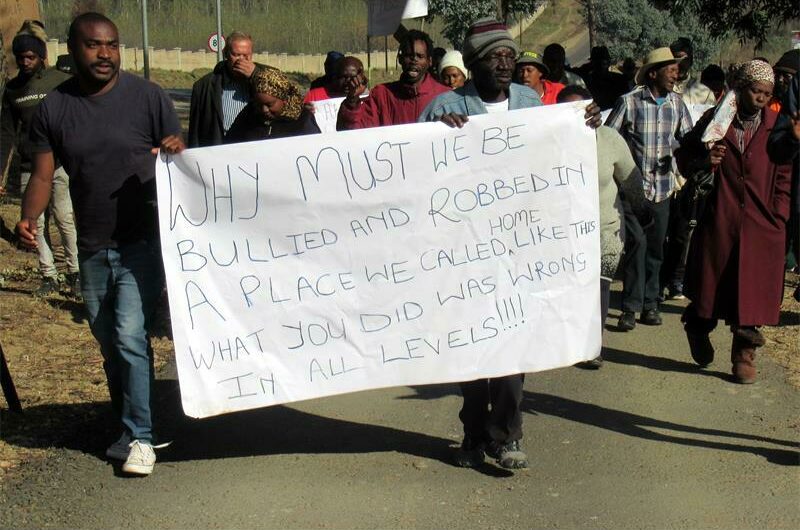 WHY MUST WE BE
BULLIED AND ROBBED IN
A PLACE WE CALLED, HOME LIKE THIS
WHAT YOU DID WAS WRONG
IN ALL LEVELS!!!!
TRAINING
8